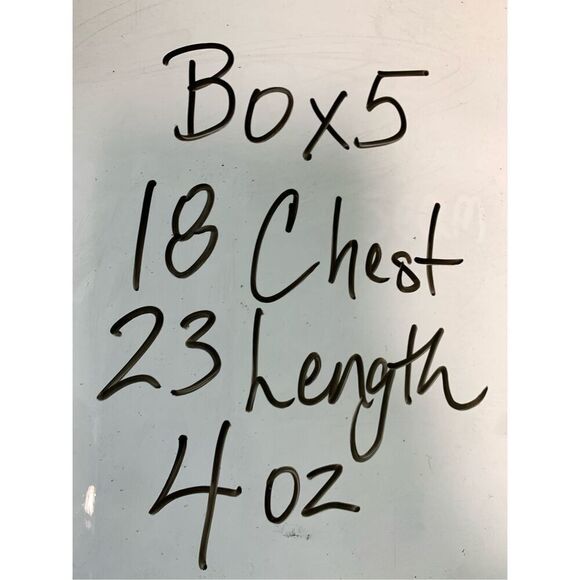 Box5
18 Chest
23 Length
4 oz